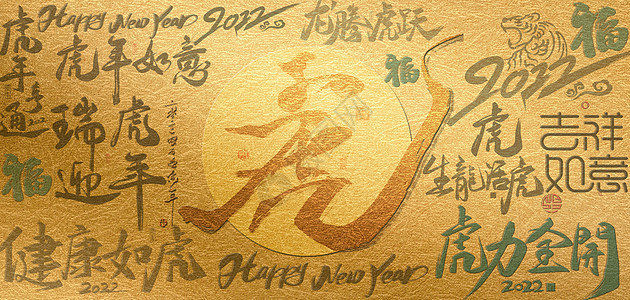 Happy New Year 2022
龙腾虎跃
福
2022
虎年亨通
虎年如意
福
虎
瑞虎迎年
虎
生龍活虎
吉祥如意
福
健康如虎
2022
Happy New Year
虎力全開
2022